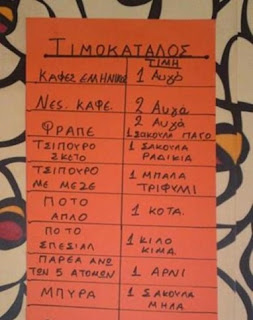 ΤΙΜΟΚΑΤΑΛΟΣ
ΤΙΜΗ
ΚΑΦΕΣ ΕΛΗΝΙΚΟΣ 1 Αυγό
ΝΕΣ. ΚΑΦΕ. 2 Αυγά
ΦΡΑΠΕ 2 Αυγά
1 ΣΑΚΟΥΛΑ ΠΑΓΟ
ΤΣΙΠΟΥΡΟ 1 ΣΑΚΟΥΛΑ
ΣΚΕΤΟ ΡΑΔΙΚΙΑ
ΤΣΙΠΟΥΡΟ 1 ΜΠΑΛΑ
ΜΕ ΜΕΖΕ ΤΡΙΦΥΛΙ
ΠΟΤΟ 1 ΚΟΤΑ.
ΑΠΛΟ
ΠΟΤΟ 1 ΚΙΛΟ
ΣΠΕΣΙΑΛ ΚΙΜΑ.
ΠΑΡΕΑ ΑΝΩ 1 ΑΡΝΙ
ΤΩΝ 5 ΑΤΟΜΩΝ
ΜΠΥΡΑ 1 ΣΑΚΟΥΛΑ
ΜΗΛΑ